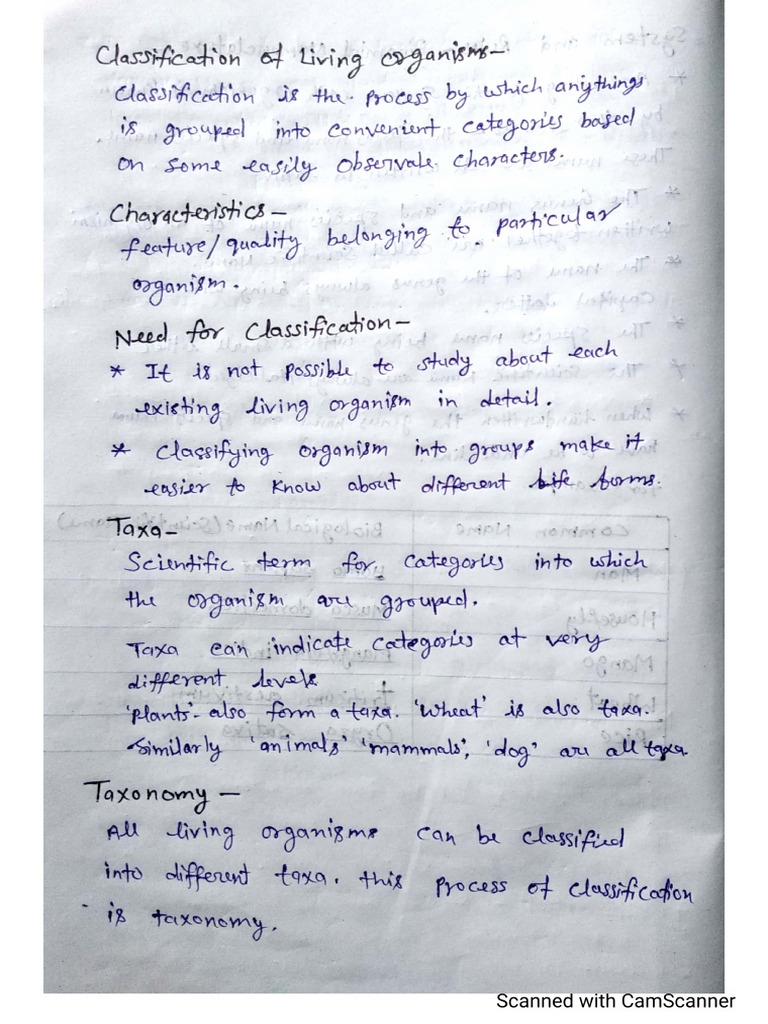 Classification of Living organisms-
Classification is the process by which anythings
is grouped into convenient categories based
on some easily observale characters.
Characteristics -
feature/quality belonging to particular
organism.
Need for Classification-
* It is not possible to study about each
existing living organism in detail.
* Classifying organism into groups make it
easier to know about different life forms.
Taxa-
Scientific term for categories into which
the organism are grouped.
Taxa can indicate categories at very
different levels
'plants' also form a taxa. 'wheat' is also taxa.
similarly 'animals' 'mammals', 'dog' are all taxa
Taxonomy -
All living organisms can be classified
into different taxa. this process of classification
is taxonomy.
Scanned with CamScanner